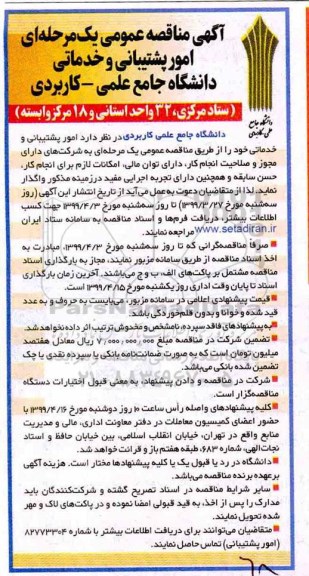 آگهی مناقصه عمومی یک مرحله‌ای
امور پشتیبانی و خدماتی
دانشگاه جامع علمی - کاربردی
دانشگاه جامع
علمی کاربردی
(ستاد مرکزی، ۳۲ واحد استانی و ۱۸ مرکز وابسته)
دانشگاه جامع علمی کاربردی در نظر دارد امور پشتیبانی و
خدماتی خود را از طریق مناقصه عمومی یک مرحله‌ای به شرکت‌های دارای
مجوز و صلاحیت انجام کار، دارای توان مالی، امکانات لازم برای انجام کار،
حسن سابقه و همچنین دارای تجربه اجرایی مفید در زمینه مذکور واگذار
نماید. لذا از متقاضیان دعوت به عمل می‌آید از تاریخ انتشار این آگهی (روز
سه‌شنبه مورخ ۱۳۹۹/۳/۲۷) تا روز سه‌شنبه مورخ ۱۳۹۹/۴/۳ جهت کسب
اطلاعات بیشتر، دریافت فرم‌ها و اسناد مناقصه به سامانه ستاد ایران
www.setadiran.ir مراجعه نمایند.
■ صرفاً مناقصه‌گرانی که تا روز سه‌شنبه مورخ ۱۳۹۹/۴/۳، مبادرت به
اخذ اسناد مناقصه از طریق سامانه مزبور نمایند، مجاز به بارگذاری اسناد
مناقصه مشتمل بر پاکت‌های الف، ب و ج می‌باشند. آخرین زمان بارگذاری
اسناد تا پایان وقت اداری روز یکشنبه مورخ ۱۳۹۹/۴/۱۵ است.
■ قیمت پیشنهادی اعلامی در سامانه مزبور، می‌بایست به حروف و به عدد
قید شده و خوانا و بدون قلم‌خوردگی باشد.
■ به پیشنهادهای فاقد سپرده، نامشخص و مخدوش ترتیب اثر داده نخواهد شد.
■ تضمین شرکت در مناقصه مبلغ ۷,۰۰۰,۰۰۰,۰۰۰ ریال معادل هفتصد
میلیون تومان است که به صورت ضمانت‌نامه بانکی یا سپرده نقدی یا چک
تضمین شده بانکی می‌باشد.
■ شرکت در مناقصه و دادن پیشنهاد، به معنی قبول اختیارات دستگاه
مناقصه‌گزار است.
■ کلیه پیشنهادهای واصله رأس ساعت ۱۰ روز دوشنبه مورخ ۱۳۹۹/۴/۱۶ با
حضور اعضای کمیسیون معاملات در دفتر معاونت اداری، مالی و مدیریت
منابع واقع در تهران، خیابان انقلاب اسلامی، بین خیابان حافظ و استاد
نجات‌الهی، شماره ۶۸۳، طبقه هفتم باز و قرائت خواهد شد.
■ دانشگاه در رد یا قبول یک یا کلیه پیشنهادها مختار است. هزینه آگهی
بر عهده برنده مناقصه می‌باشد.
■ سایر شرایط مناقصه در اسناد تصریح گشته و شرکت‌کنندگان باید
مدارک را پس از اخذ، به قید قبولی امضا نموده و در پاکت‌های لاک و مهر
شده تحویل نمایند.
■ متقاضیان می‌توانند برای دریافت اطلاعات بیشتر با شماره ۸۲۷۷۳۳۰۴
(امور پشتیبانی) تماس حاصل نمایند.